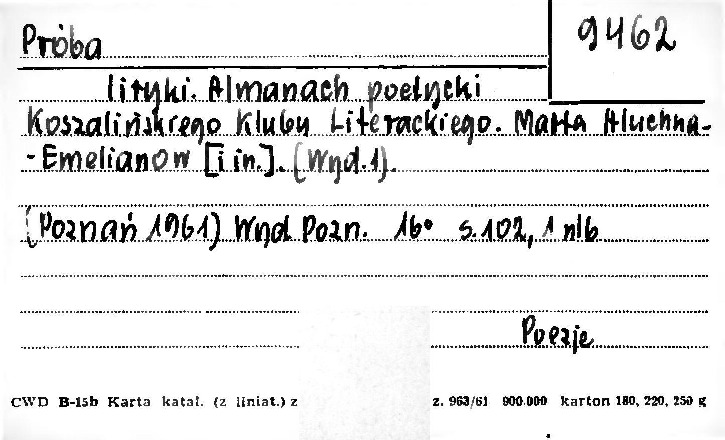 Próba
9462
liryki. Almanach poetycki
Koszalińskiego Klubu Literackiego. Marta Aluchna-
-Emelianow [i in.]. (Wyd.1).
(Poznań 1961) Wyd. Pozn. 16° s.102, 1 nlb
Poezje
CWD B-15b Karta katal. (z liniat.) z
z. 963/61 900.000 karton 180, 220, 250 g